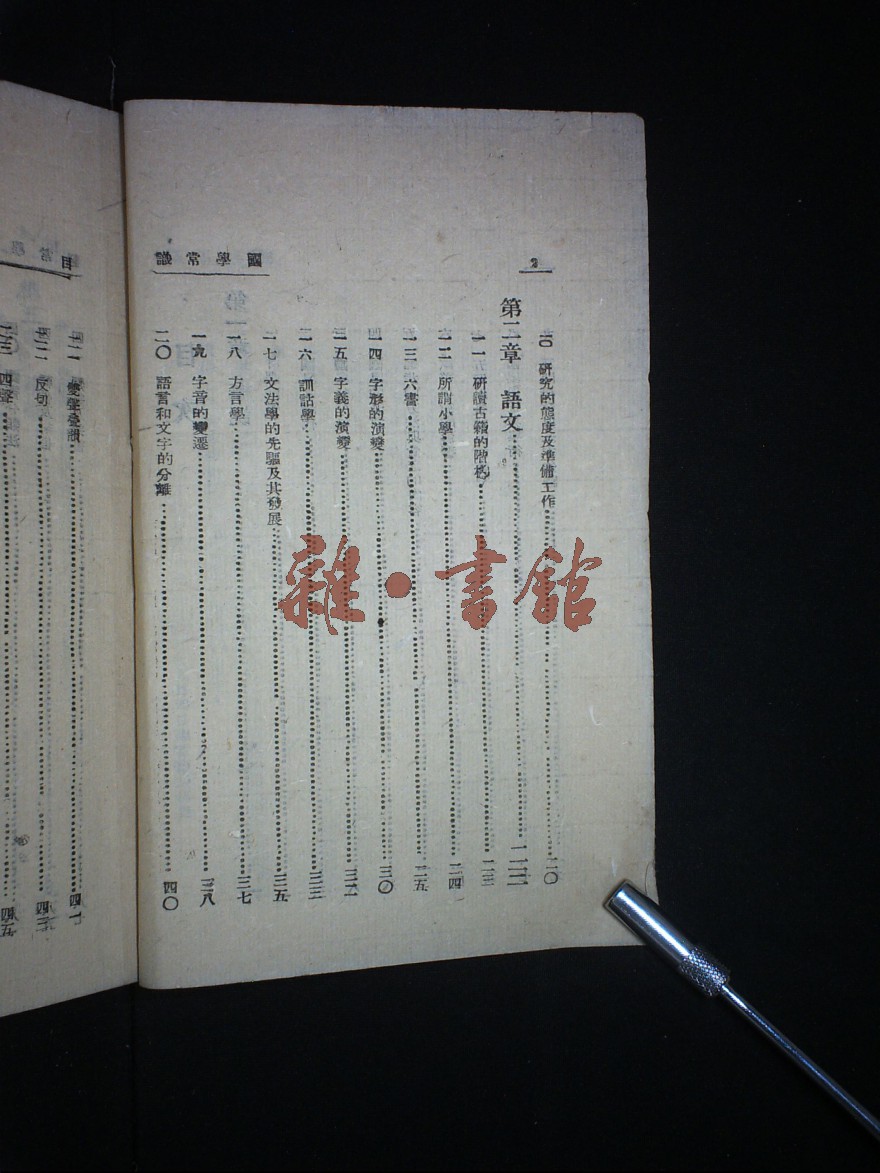 2
國學常識
一〇 研究的態度及準備工作……二〇
第二章 語文……二三
一一 研讀古籍的階梯……二三
一二 所謂小學……二四
一三 六書……二五
一四 字形的演變……三〇
一五 字義的演變……三二
一六 訓詁學……三三
一七 文法學的先驅及其發展……三五
一八 方言學……三七
一九 字音的變遷……三八
二〇 語言和文字的分離……四〇
目
二一 雙聲疊韻……四一
二二 反切……四二
二三 四聲……四五
雜·書館